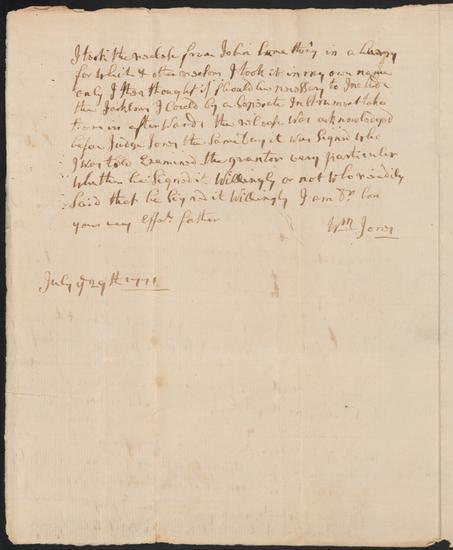 I took the release from John Lane thus in a hurry
for which & other reasons I took it in my own name
only I then thought if should be necessary to Include
the Jacksons I Could by a Seperate Instrument take
them in afterwards the release was acknowledged
before Judge Jones the Same Day it was Signd who
I was told Examined the grantor very particular
whether he Signed it Willingly or not who readily
Said that he Signed it Willingly I am Dr Son
your very Affec. father
Wm Jones
July ye 29th 1771